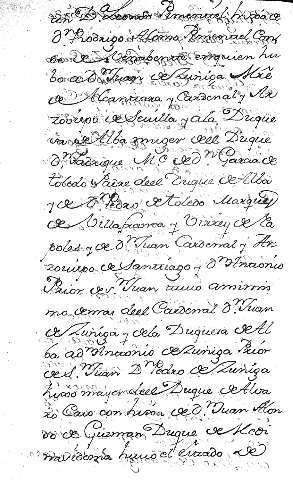 Dª Leonor Pimentel hija de
Dⁿ Rodrigo Alonso Pimentel Con
de de Benabente en quien hu
bo a Dⁿ Juan de Zuñiga Mẽ
de Alcantara y Cardenal y Ar
zobispo de Sevilla y a la Duque
sa de Alba muger del Duque
Dⁿ Fadrique Mᵉ de Dⁿ Garcia de
toledo Padre del Duque de Alba
y de Dⁿ Pedro de Toledo Marques
de Villafranca y Virrey de Na
poles y de Dⁿ Juan Cardenal y Ar
zobispo de Santiago y Dⁿ Antonio
Prior de Sⁿ Juan tuvo assimis
mo demas del Cardenal Dⁿ Juan
de Zuñiga y de la Duquesa de Al
ba a Dⁿ Antonio de Zuñiga Prior
de Sⁿ Juan Dⁿ Pedro de Zuñiga
hijo mayor del Duque de Alva
ro Caso con hija de Dⁿ Juan Alon
so de Guzman Duque de Medi
na sidonia huvo el estado de